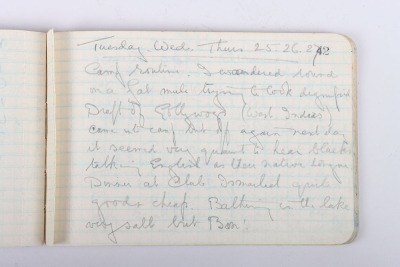 Tuesday Wed. Thurs 25. 26. 27 42
Camp routine. I wandered round
on a fat mule trying to look dignified
Draft of (West Indies)
came at camp but up again next day
it seemed very quaint to hear blacks
talking English as their native tongue.
Dinner at Club Ismailia quite
good & cheap. Bathing in the lake
very salt but Bon!